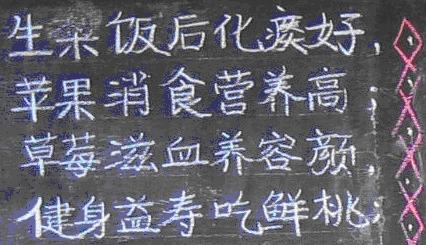 生梨饭后化痰好，
苹果消食营养高；
草莓滋血养容颜，
健身益寿吃鲜桃；